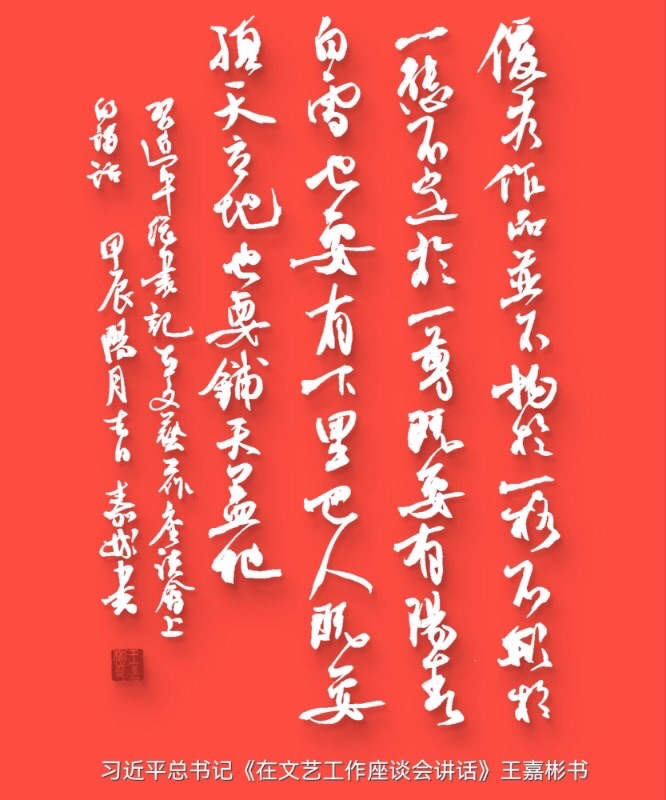 優秀作品並不拘於一格不形於
一態不定於一尊既要有陽春
白雪也要有下里巴人既要
頂天立地也要鋪天蓋地
習近平總書記在文藝工作座談會上
的講話 甲辰陽月吉日 嘉彬書
习近平总书记《在文艺工作座谈会讲话》王嘉彬书